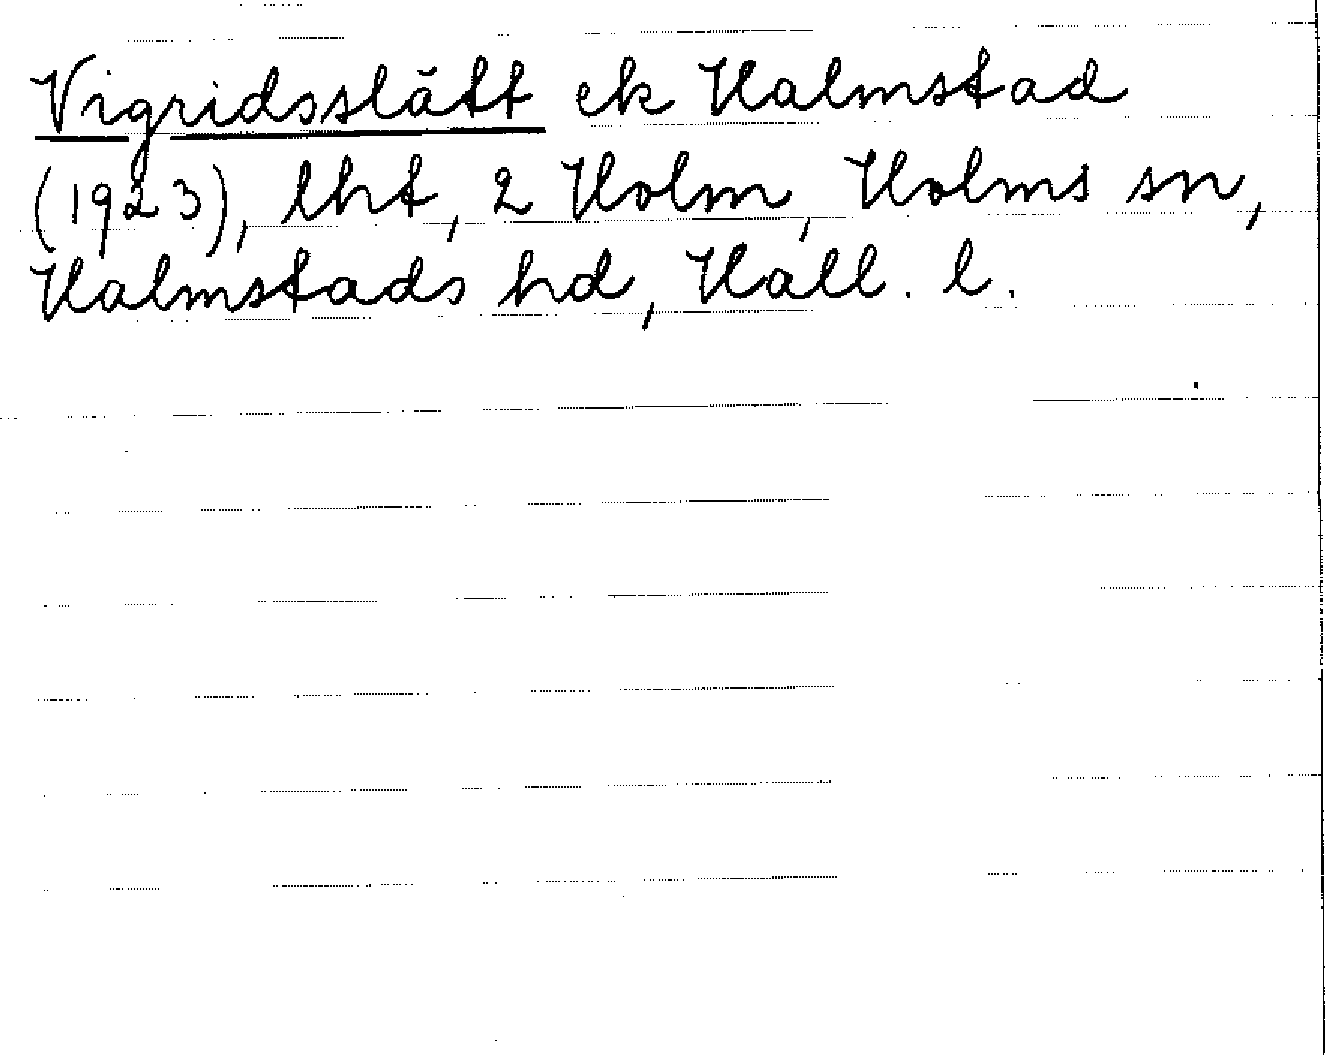 Vigridsslätt ek Halmstad
(1923), lht, 2 Holm, Holms sn,
Halmstads hd, Hall. l.